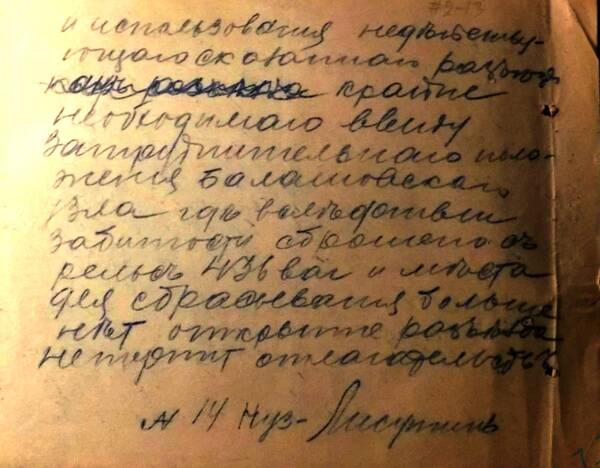 и использования недѣйству-
ющаго сказаннаго разъѣзда
крайне
необходимаго ввиду
затруднительнаго поло-
жения Балашовскаго
узла гдѣ вслѣдствии
забитости сброшено съ
рельсъ 436 ваг и мѣста
для сбрасывания больше
нѣт открытие разъѣзда
не терпит отлагательствъ
№ 14 Нуз-